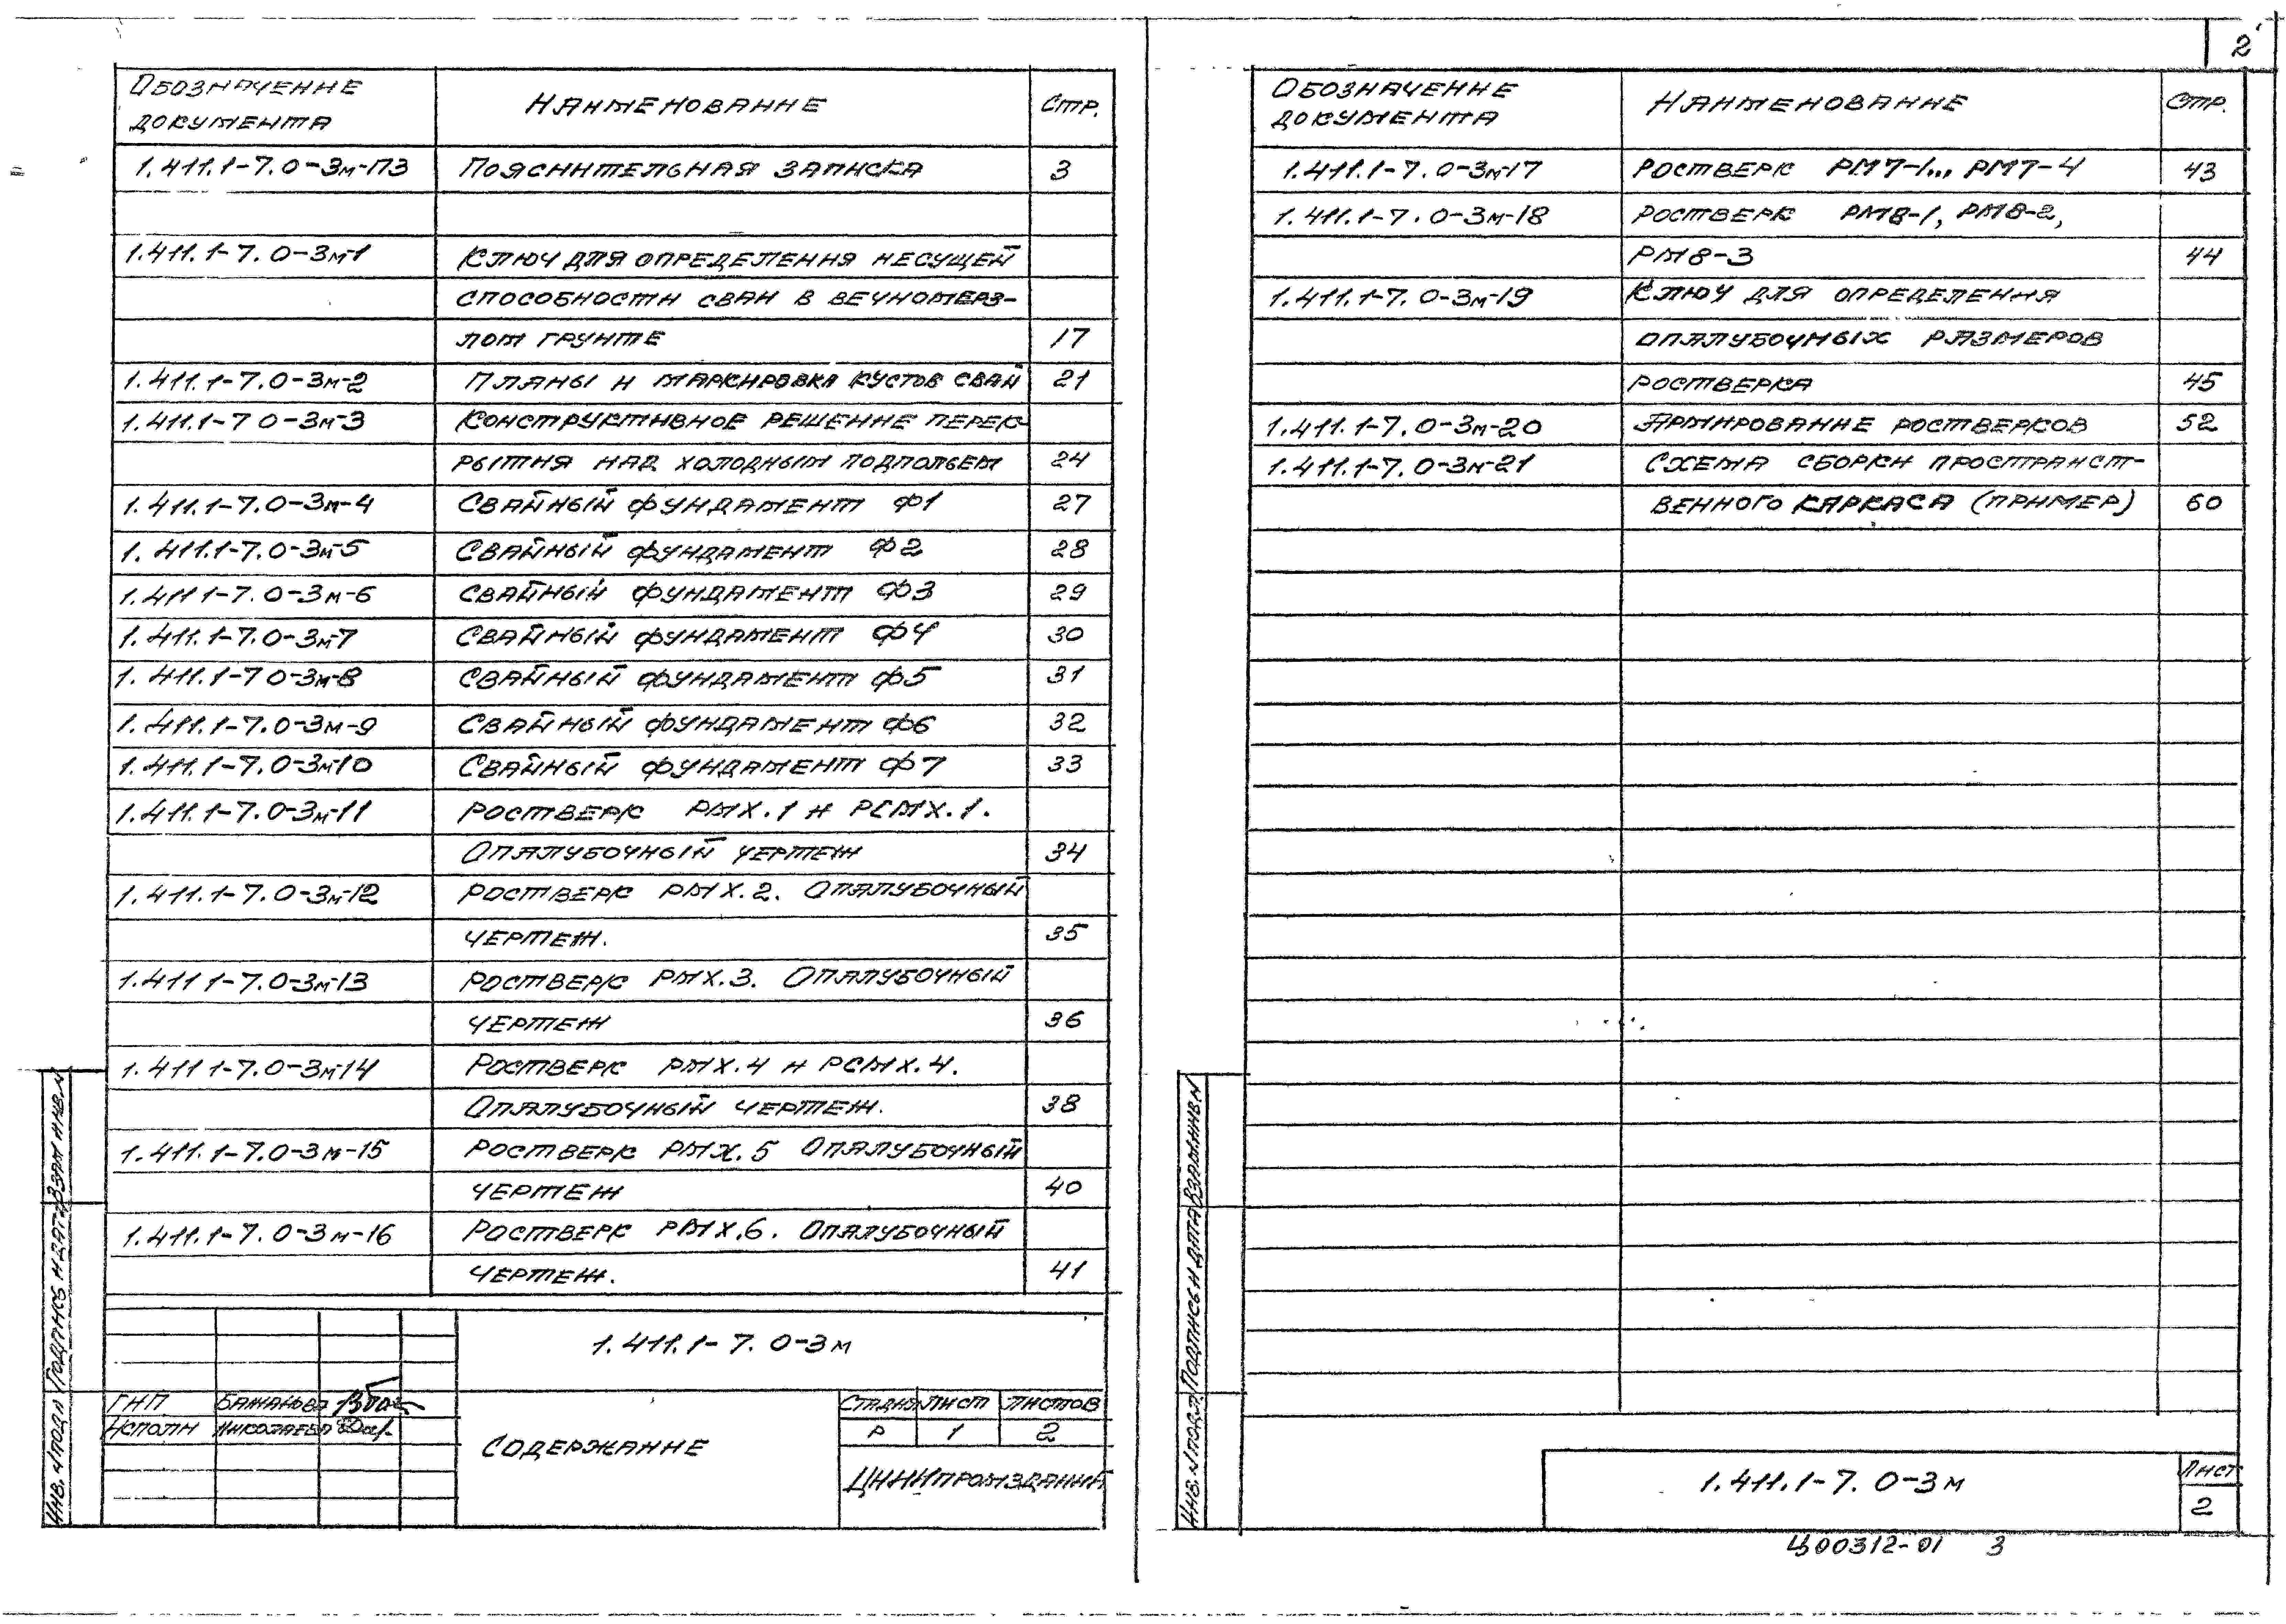 2
Обозначение документа Наименование Стр.
1.411.1-7.0-3м-ПЗ Пояснительная записка 3
1.411.1-7.0-3м-1 Ключ для определения несущей
способности сваи в вечномерз-
лом грунте 17
1.411.1-7.0-3м-2 Планы и маркировка кустов свай 21
1.411.1-7 0-3м-3 Конструктивное решение перек-
рытия над холодным подпольем 24
1.411.1-7.0-3м-4 Свайный фундамент Ф1 27
1.411.1-7.0-3м-5 Свайный фундамент Ф2 28
1.411 1-7.0-3м-6 Свайный фундамент Ф3 29
1.411.1-7.0-3м-7 Свайный фундамент Ф4 30
1.411.1-7 0-3м-8 Свайный фундамент Ф5 31
1.411.1-7.0-3м-9 Свайный фундамент Ф6 32
1.411.1-7.0-3м-10 Свайный фундамент Ф7 33
1.411.1-7.0-3м-11 Ростверк РМХ.1 и РСМХ.1.
Опалубочный чертеж 34
1.411.1-7.0-3м-12 Ростверк РМХ.2. Опалубочный
чертеж. 35
1.411 1-7.0-3м-13 Ростверк РМХ.3. Опалубочный
чертеж 36
1.411 1-7.0-3м-14 Ростверк РМХ.4 и РСМХ.4.
Опалубочный чертеж. 38
1.411.1-7.0-3м-15 Ростверк РМХ.5 Опалубочный
чертеж 40
1.411.1-7.0-3м-16 Ростверк РМХ.6. Опалубочный
чертеж. 41
1.411.1-7.0-3м
ГИП Бажанова
Исполн Николаева
Содержание
Стадия Лист Листов
Р 1 2
ЦНИИпромзданий
Инв.№подл Подпись и дат Взам инв.№
Обозначение документа Наименование Стр.
1.411.1-7.0-3м-17 Ростверк РМ7-1... РМ7-4 43
1.411.1-7.0-3м-18 Ростверк РМ8-1, РМ8-2,
РМ8-3 44
1.411.1-7.0-3м-19 Ключ для определения
опалубочных размеров
ростверка 45
1.411.1-7.0-3м-20 Армирование ростверков 52
1.411.1-7.0-3м-21 Схема сборки пространст-
венного каркаса (пример) 60
Инв.№подл. Подпись и дата Взам.инв.№
1.411.1-7.0-3м
Лист
2
Ц00312-01 3